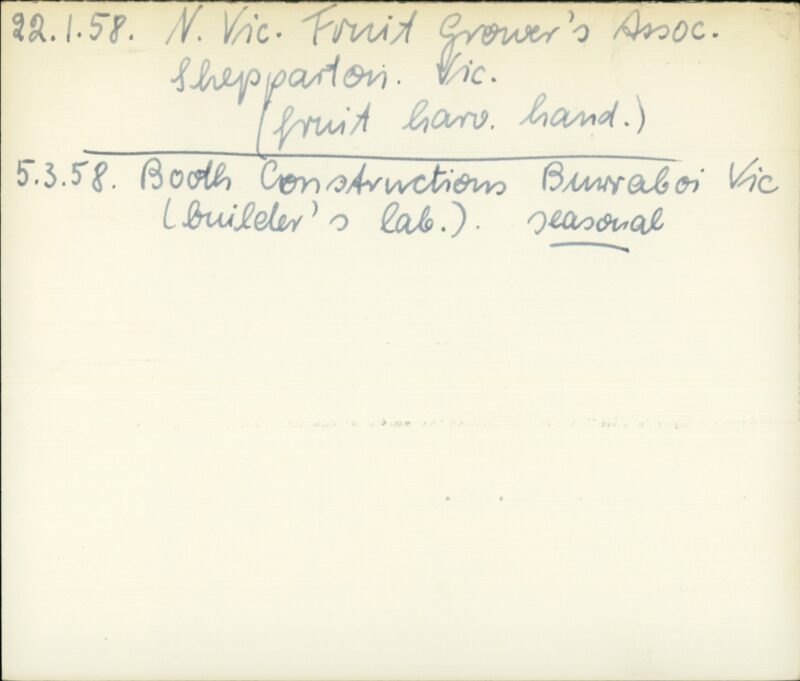 22.1.58. N. Vic. Fruit Grower's Assoc.
Shepparton. Vic.
(fruit harv. hand.)
5.3.58. Booth Constructions Burraboi Vic
(builder's lab.). seasonal